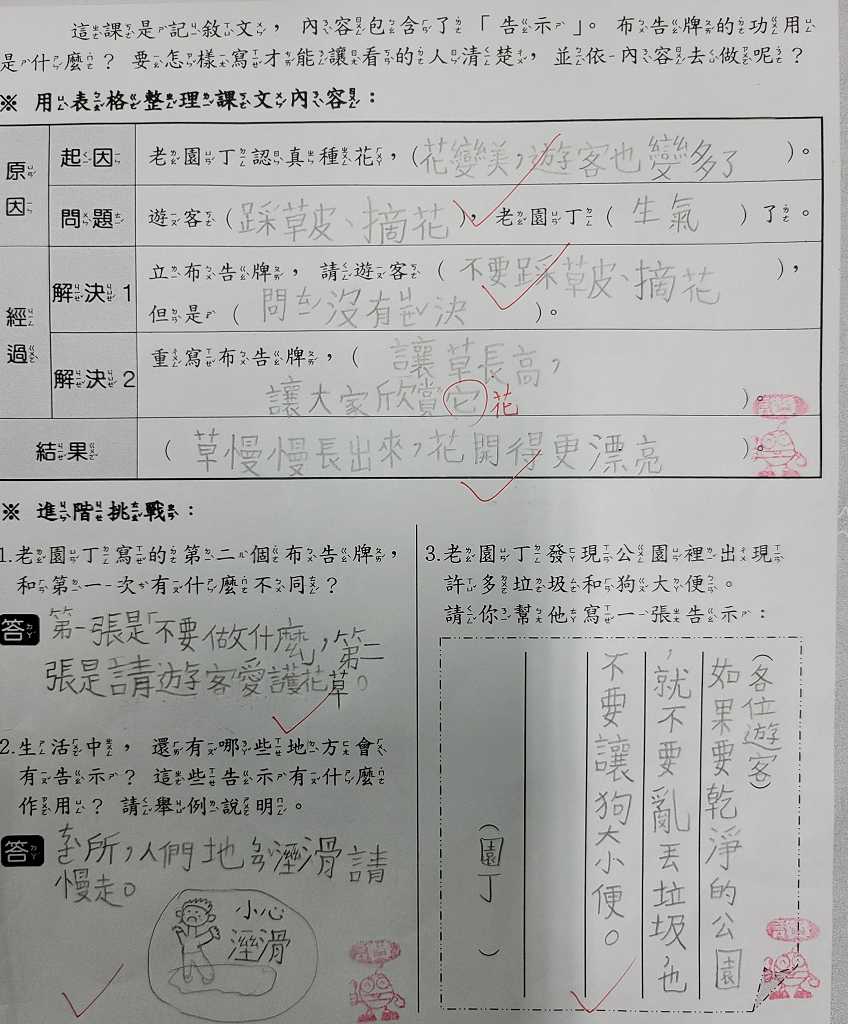 這課是記敘文，內容包含了「告示」。布告牌的功用
是什麼？要怎樣寫才能讓看的人清楚，並依內容去做呢？
※ 用表格整理課文內容：
原因
起因
老園丁認真種花，（花變美，遊客也變多了）。
問題
遊客（踩草皮、摘花），老園丁（生氣）了。
經過
解決1
立布告牌，請遊客（不要踩草皮、摘花），
但是（問ㄊㄧˊ沒有解決）。
解決2
重寫布告牌，（讓草長高，
讓大家欣賞它花）。
結果
（草慢慢長出來，花開得更漂亮）。
※ 進階挑戰：
1.老園丁寫的第二個布告牌，
和第一次有什麼不同？
答 第一張是「不要做什麼」，第二
張是請遊客愛護花草。
2.生活中，還有哪些地方會
有告示？這些告示有什麼
作用？請舉例說明。
答 所，人們地 溼滑請
慢走。
小心
溼滑
3.老園丁發現公園裡出現
許多垃圾和狗大便。
請你幫他寫一張告示：
（各位遊客）
如果要乾淨的公園
，就不要亂丟垃圾，也
不要讓狗大小便。
（園丁）